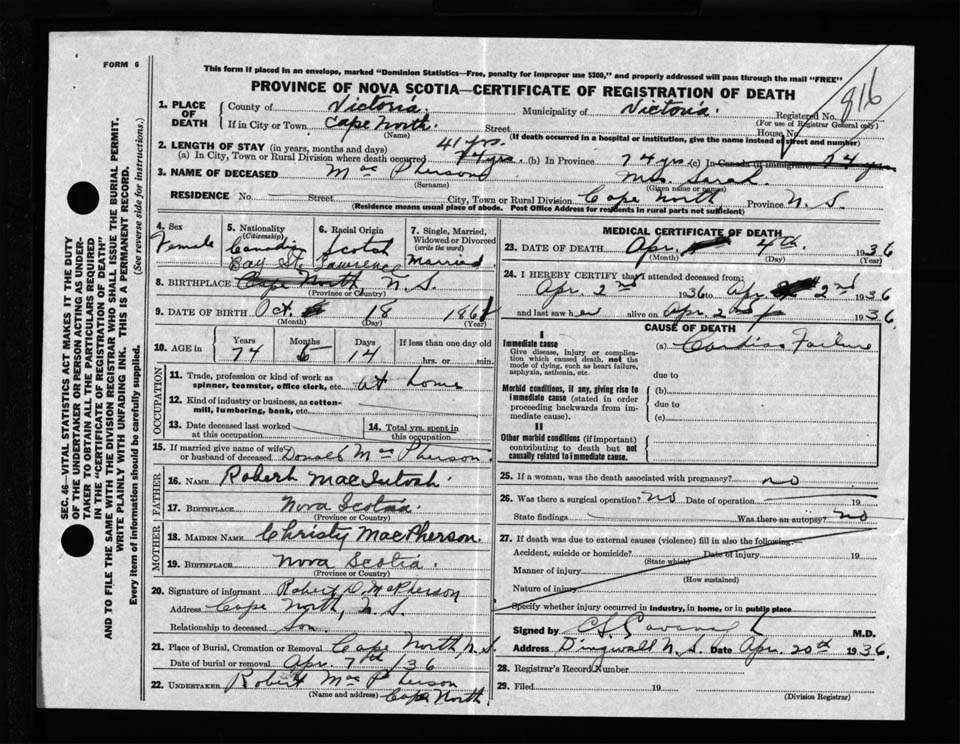 FORM 6
This form if placed in an envelope, marked "Dominion Statistics—Free, penalty for improper use $300," and properly addressed will pass through the mail "FREE"
PROVINCE OF NOVA SCOTIA—CERTIFICATE OF REGISTRATION OF DEATH
816
1. PLACE OF DEATH
County of Victoria. Municipality of Victoria. Registered No.
(For use of Registrar General only)
If in City or Town Cape North. Street House No.
(Name) (If death occurred in a hospital or institution, give the name instead of street and number)
2. LENGTH OF STAY (in years, months and days) 41 yrs.
(a) In City, Town or Rural Division where death occurred 74 yrs. (b) In Province 74 yrs (c) In Canada if immigrant 74 yrs
3. NAME OF DECEASED Mac Pherson Mrs Sarah.
(Surname) (Given name or names)
RESIDENCE No. Street City, Town or Rural Division Cape North, Province N. S.
(Residence means usual place of abode. Post Office Address for residents in rural parts not sufficient)
4. Sex Female
5. Nationality (Citizenship) Canadian
6. Racial Origin Scotch
7. Single, Married, Widowed or Divorced (write the word) Married
Bay St. Lawrence
8. BIRTHPLACE Cape North, N. S.
(Province or Country)
9. DATE OF BIRTH Oct. 18
(Month) (Day) (Year)
10. AGE in Years 74 Months 5 Days 14 If less than one day old hrs. or min.
OCCUPATION
11. Trade, profession or kind of work as spinner, teamster, office clerk, etc. at home
12. Kind of industry or business, as cotton-mill, lumbering, bank, etc.
13. Date deceased last worked at this occupation
14. Total yrs. spent in this occupation
15. If married give name of wife or husband of deceased Donald Mac Pherson
FATHER
16. NAME Robert MacIntosh.
17. BIRTHPLACE Nova Scotia.
(Province or Country)
MOTHER
18. MAIDEN NAME Christy MacPherson.
19. BIRTHPLACE Nova Scotia.
(Province or Country)
20. Signature of informant Robert D. McPherson
Address Cape North, N. S.
Relationship to deceased Son.
21. Place of Burial, Cremation or Removal Cape North N. S.
Date of burial or removal Apr. 7th /36
22. UNDERTAKER Robert Mac Pherson
(Name and address) Cape North
MEDICAL CERTIFICATE OF DEATH
23. DATE OF DEATH Apr. 4th. 1936
(Month) (Day) (Year)
24. I HEREBY CERTIFY that I attended deceased from:
Apr. 2nd 1936 to Apr 2nd 1936
and last saw her alive on Apr. 2nd 1936.
CAUSE OF DEATH
I
Immediate cause
Give disease, injury or complication which caused death, not the mode of dying, such as heart failure, asphyxia, asthenia, etc.
(a) Cardiac Failure
due to
Morbid conditions, if any, giving rise to immediate cause (stated in order proceeding backwards from immediate cause).
(b)
due to
(c)
II
Other morbid conditions (if important) contributing to death but not causally related to immediate cause.
25. If a woman, was the death associated with pregnancy? no
26. Was there a surgical operation? no Date of operation 19
State findings Was there an autopsy? no
27. If death was due to external causes (violence) fill in also the following:—
Accident, suicide or homicide? Date of injury 19
(State which)
Manner of injury
(How sustained)
Nature of injury
Specify whether injury occurred in industry, in home, or in public place
Signed by M.D.
Address Dingwall N. S. Date Apr. 20th 1936.
28. Registrar's Record Number
29. Filed 19
(Division Registrar)
SEC. 46—VITAL STATISTICS ACT MAKES IT THE DUTY
OF THE UNDERTAKER OR PERSON ACTING AS UNDER-
TAKER TO OBTAIN ALL THE PARTICULARS REQUIRED
IN THE "CERTIFICATE OF REGISTRATION OF DEATH"
AND TO FILE THE SAME WITH THE DIVISION REGISTRAR WHO SHALL ISSUE THE BURIAL PERMIT.
WRITE PLAINLY WITH UNFADING INK. THIS IS A PERMANENT RECORD.
Every item of information should be carefully supplied. (See reverse side for instructions.)